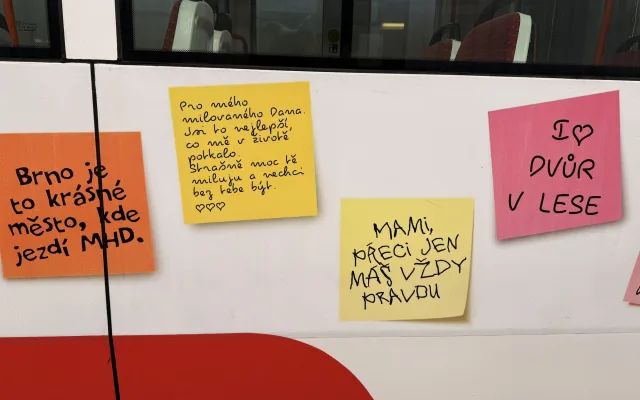 Brno je
to krásné
město, kde
jezdí MHD.
Pro mého
milovaného Dana.
Jsi to nejlepší,
co mě v životě
potkalo.
Strašně moc tě
miluju a nechci
bez tebe být.
♡♡♡
MAMI,
PŘECI JEN
MÁŠ VŽDY
PRAVDU
I♡
DVŮR
V LESE